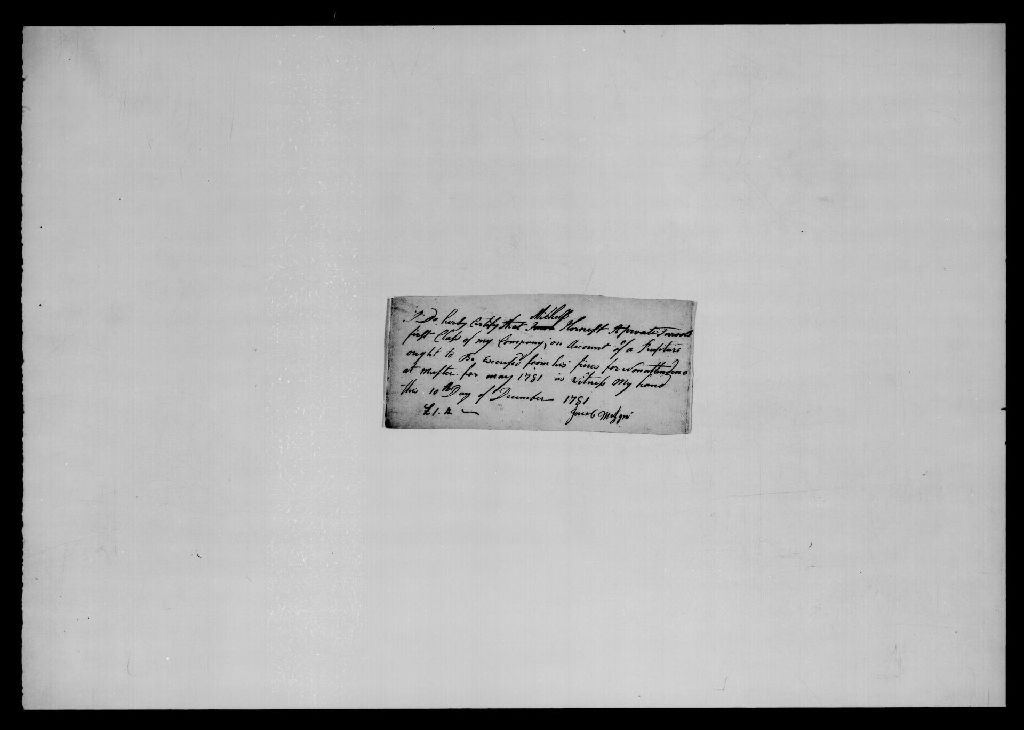 I Do hereby Certify that Hornefft A private
first Class of my Company, on Account of a
ought to Be Excused from his fines for Nonattendance
at Muster for may 1781 as witness My hand
this 10th Day of December 1781
£1. Jacob